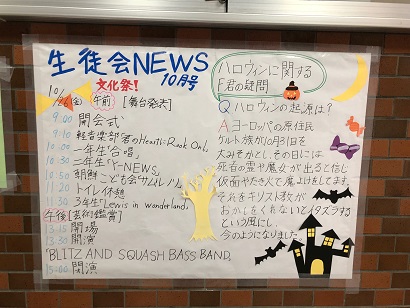 生徒会NEWS
10月号
文化祭!
10/26(金) 午前 [舞台発表]
9:00 開会式
9:10 軽音楽部 君のHeartにRock On!
10:00 一年生「合唱」
10:30 二年生「Y-NEWS」
10:50 朝鮮こども会サムルノリ
11:20 トイレ休憩
11:30 3年生「Lewis in wonderland」
午後[芸術鑑賞]
13:15 開場
13:30 開演
"BLITZ AND SQUASH BASS BAND"
15:00 閉演
ハロウィンに関する
F君の疑問
Q ハロウィンの起源は?
A ヨーロッパの原住民
ケルト族が10月31日を
大みそかとし、その日には
死者の霊や魔女が出ると信じ
仮面やたき火で魔よけをしてます。
それをキリスト教が
おかしをくれないとイタズラする
という風にし
今のようになりました